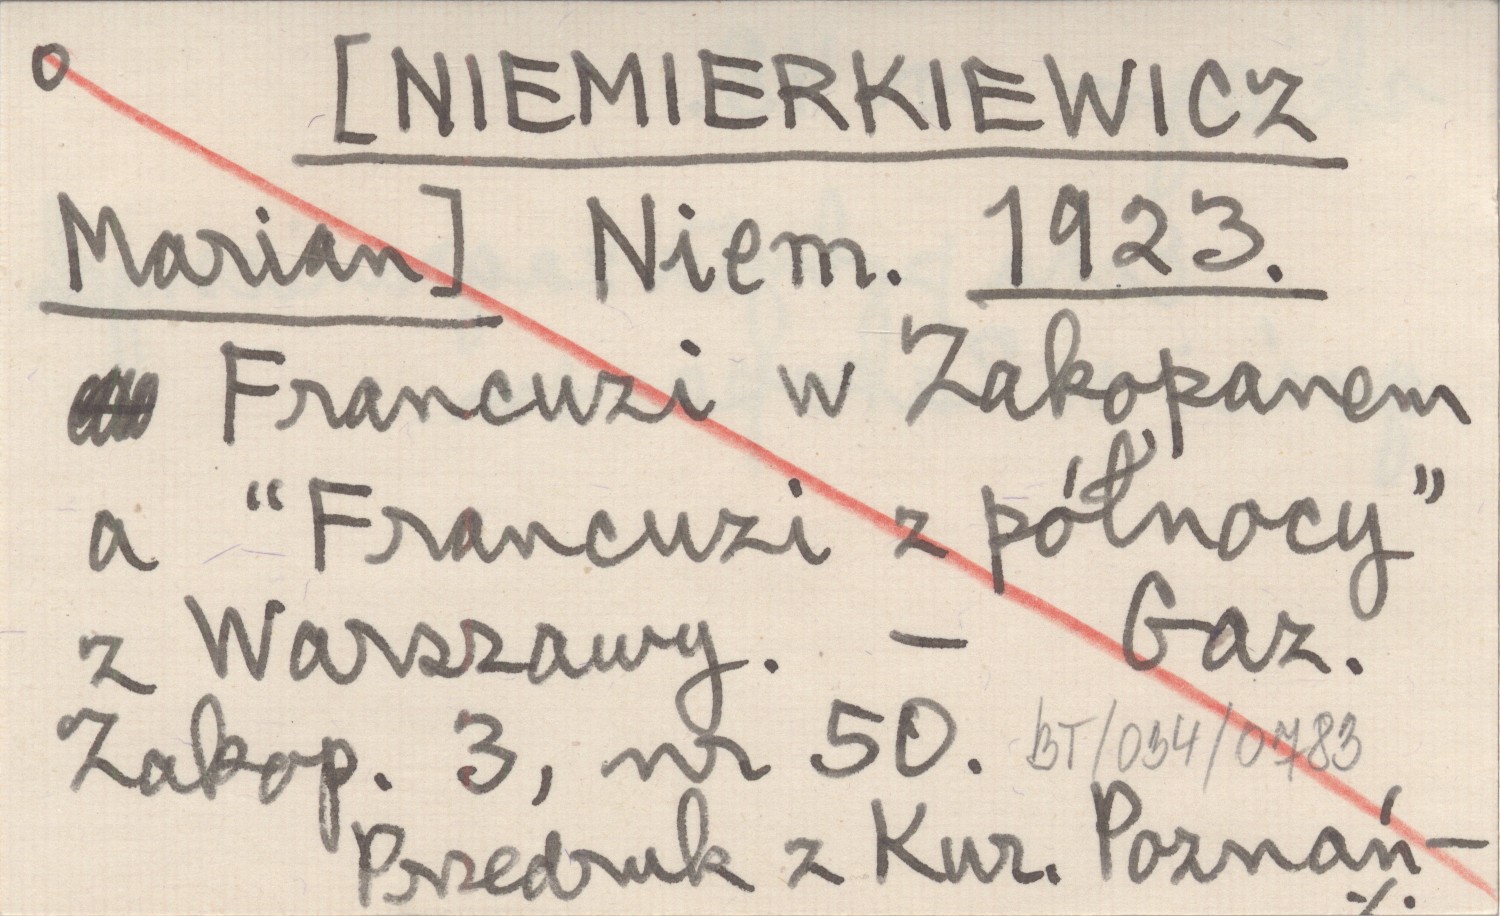 o [NIEMIERKIEWICZ
Marian] Niem. 1923.
Francuzi w Zakopanem
a "Francuzi z północy"
z Warszawy. – Gaz.
Zakop. 3, nr 50. BT/034/0783
Przedruk z Kur. Poznań-
%.